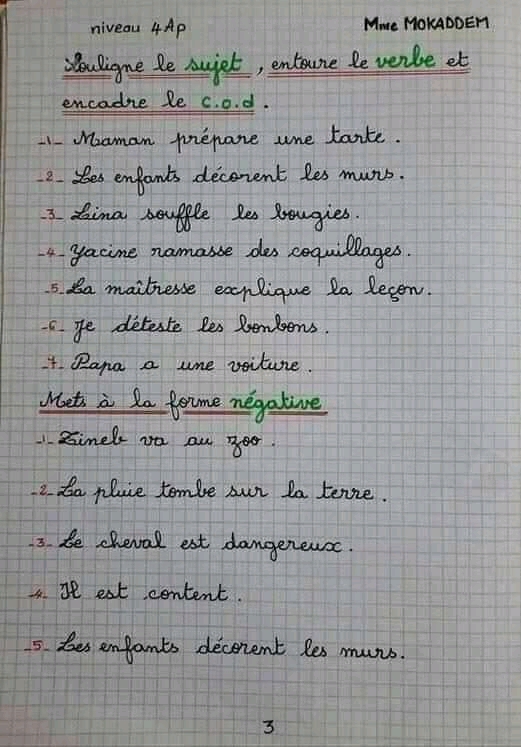 niveau 4Ap
Mme MOKADDEM
Souligne le sujet , entoure le verbe et
encadre le c.o.d .
_1_ Maman prépare une tarte .
_2_ Les enfants décorent les murs .
_3_ Lina souffle les bougies .
_4_ Yacine ramasse des coquillages .
_5_ La maîtresse explique la leçon .
_6_ Je déteste les bonbons .
_7_ Papa a une voiture .
Mets à la forme négative
_1_ Zineb va au zoo .
_2_ La pluie tombe sur la terre .
_3_ Le cheval est dangereux .
_4_ Il est content .
_5_ Les enfants décorent les murs .
3